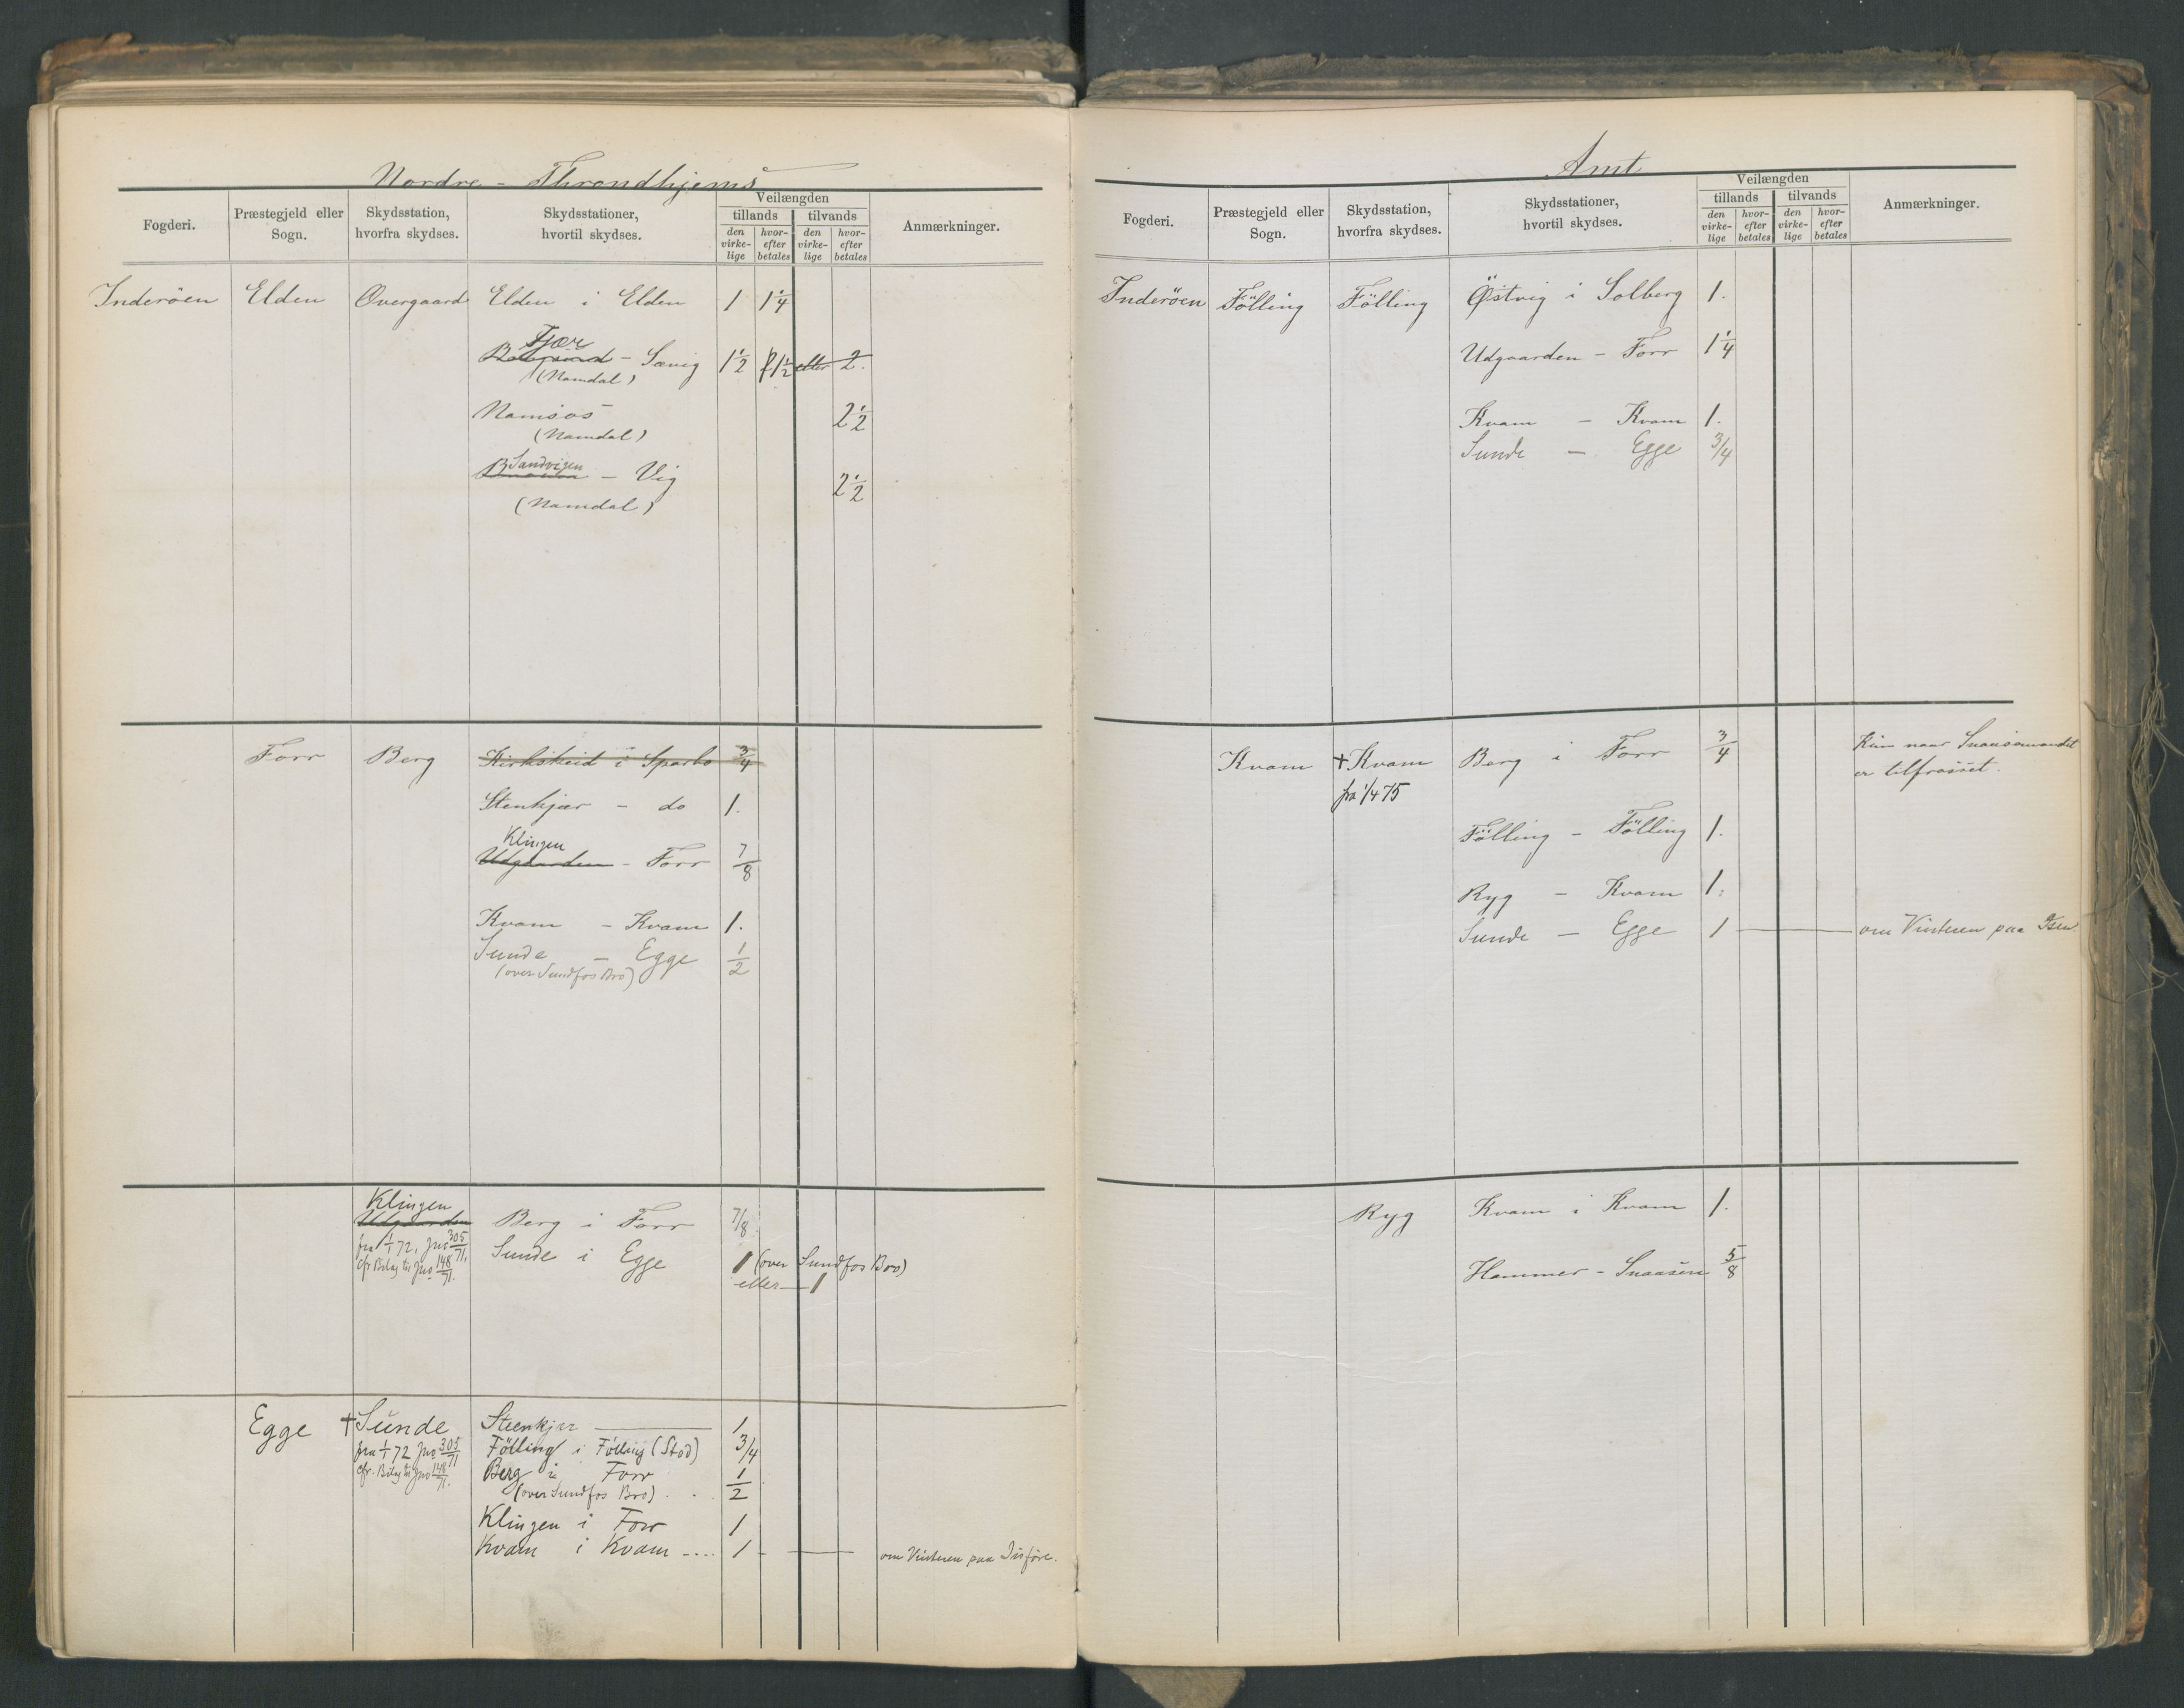 Nordre - Throndhjems
Fogderi. Præstegjeld eller Sogn. Skydsstation, hvorfra skydses. Skydsstationer, hvortil skydses. Veilængden Anmærkninger.
tillands tilvands
den virke-lige hvor-efter betales den virke-lige hvor-efter betales
Inderöen Elden Overgaard Elden i Elden 1 1 1/4
Tjær
- Sævig 1 1/2 1 1/2 eller 2.
(Namdal)
Namsos 2 1/2
(Namdal)
Sandvigen
- Vig 2 1/2
(Namdal)
Forr Berg Kirkskeid i Sparbo 3/4
Stenkjær - do 1.
Klingen
Udgaarden - Forr 7/8
Kvam - Kvam 1.
Sunde - Egge 1/2
(over Sundfos Bro)
Klingen
Udgaarden Berg i Forr 7/8
fra 1/1 72, Jno 305/71,
cfr. Bilag til Jno 148/71.
Sunde i Egge 1 (over Sundfos Bro)
eller — 1
Egge +Sunde Steenkjær 1
fra 1/1 72 Jno 305/71 Fölling i Fölling (Stod) 3/4
cfr. Bilag til Jno 148/71. Berg i Forr 1/2
(over Sundfos Bro) . .
Klingen i Forr 1
Kvam i Kvam .... 1 - — om Vinteren paa Iisföre.
Amt
Fogderi. Præstegjeld eller Sogn. Skydsstation, hvorfra skydses. Skydsstationer, hvortil skydses. Veilængden Anmærkninger.
tillands tilvands
den virke-lige hvor-efter betales den virke-lige hvor-efter betales
Inderöen Fölling Fölling Östvig i Solberg 1.
Udgaarden - Forr 1 1/4
Kvam - Kvam 1.
Sunde - Egge 3/4
Kvam +Kvam Berg i Forr 3/4 Kun naar Snaasevandet
fra 1/4 75 er tilfrosset.
Fölling - Fölling 1.
Ryg - Kvam 1.
Sunde - Egge 1 — om Vinteren paa Isen
Ryg Kvam i Kvam 1.
Hammer - Snaasen 5/8